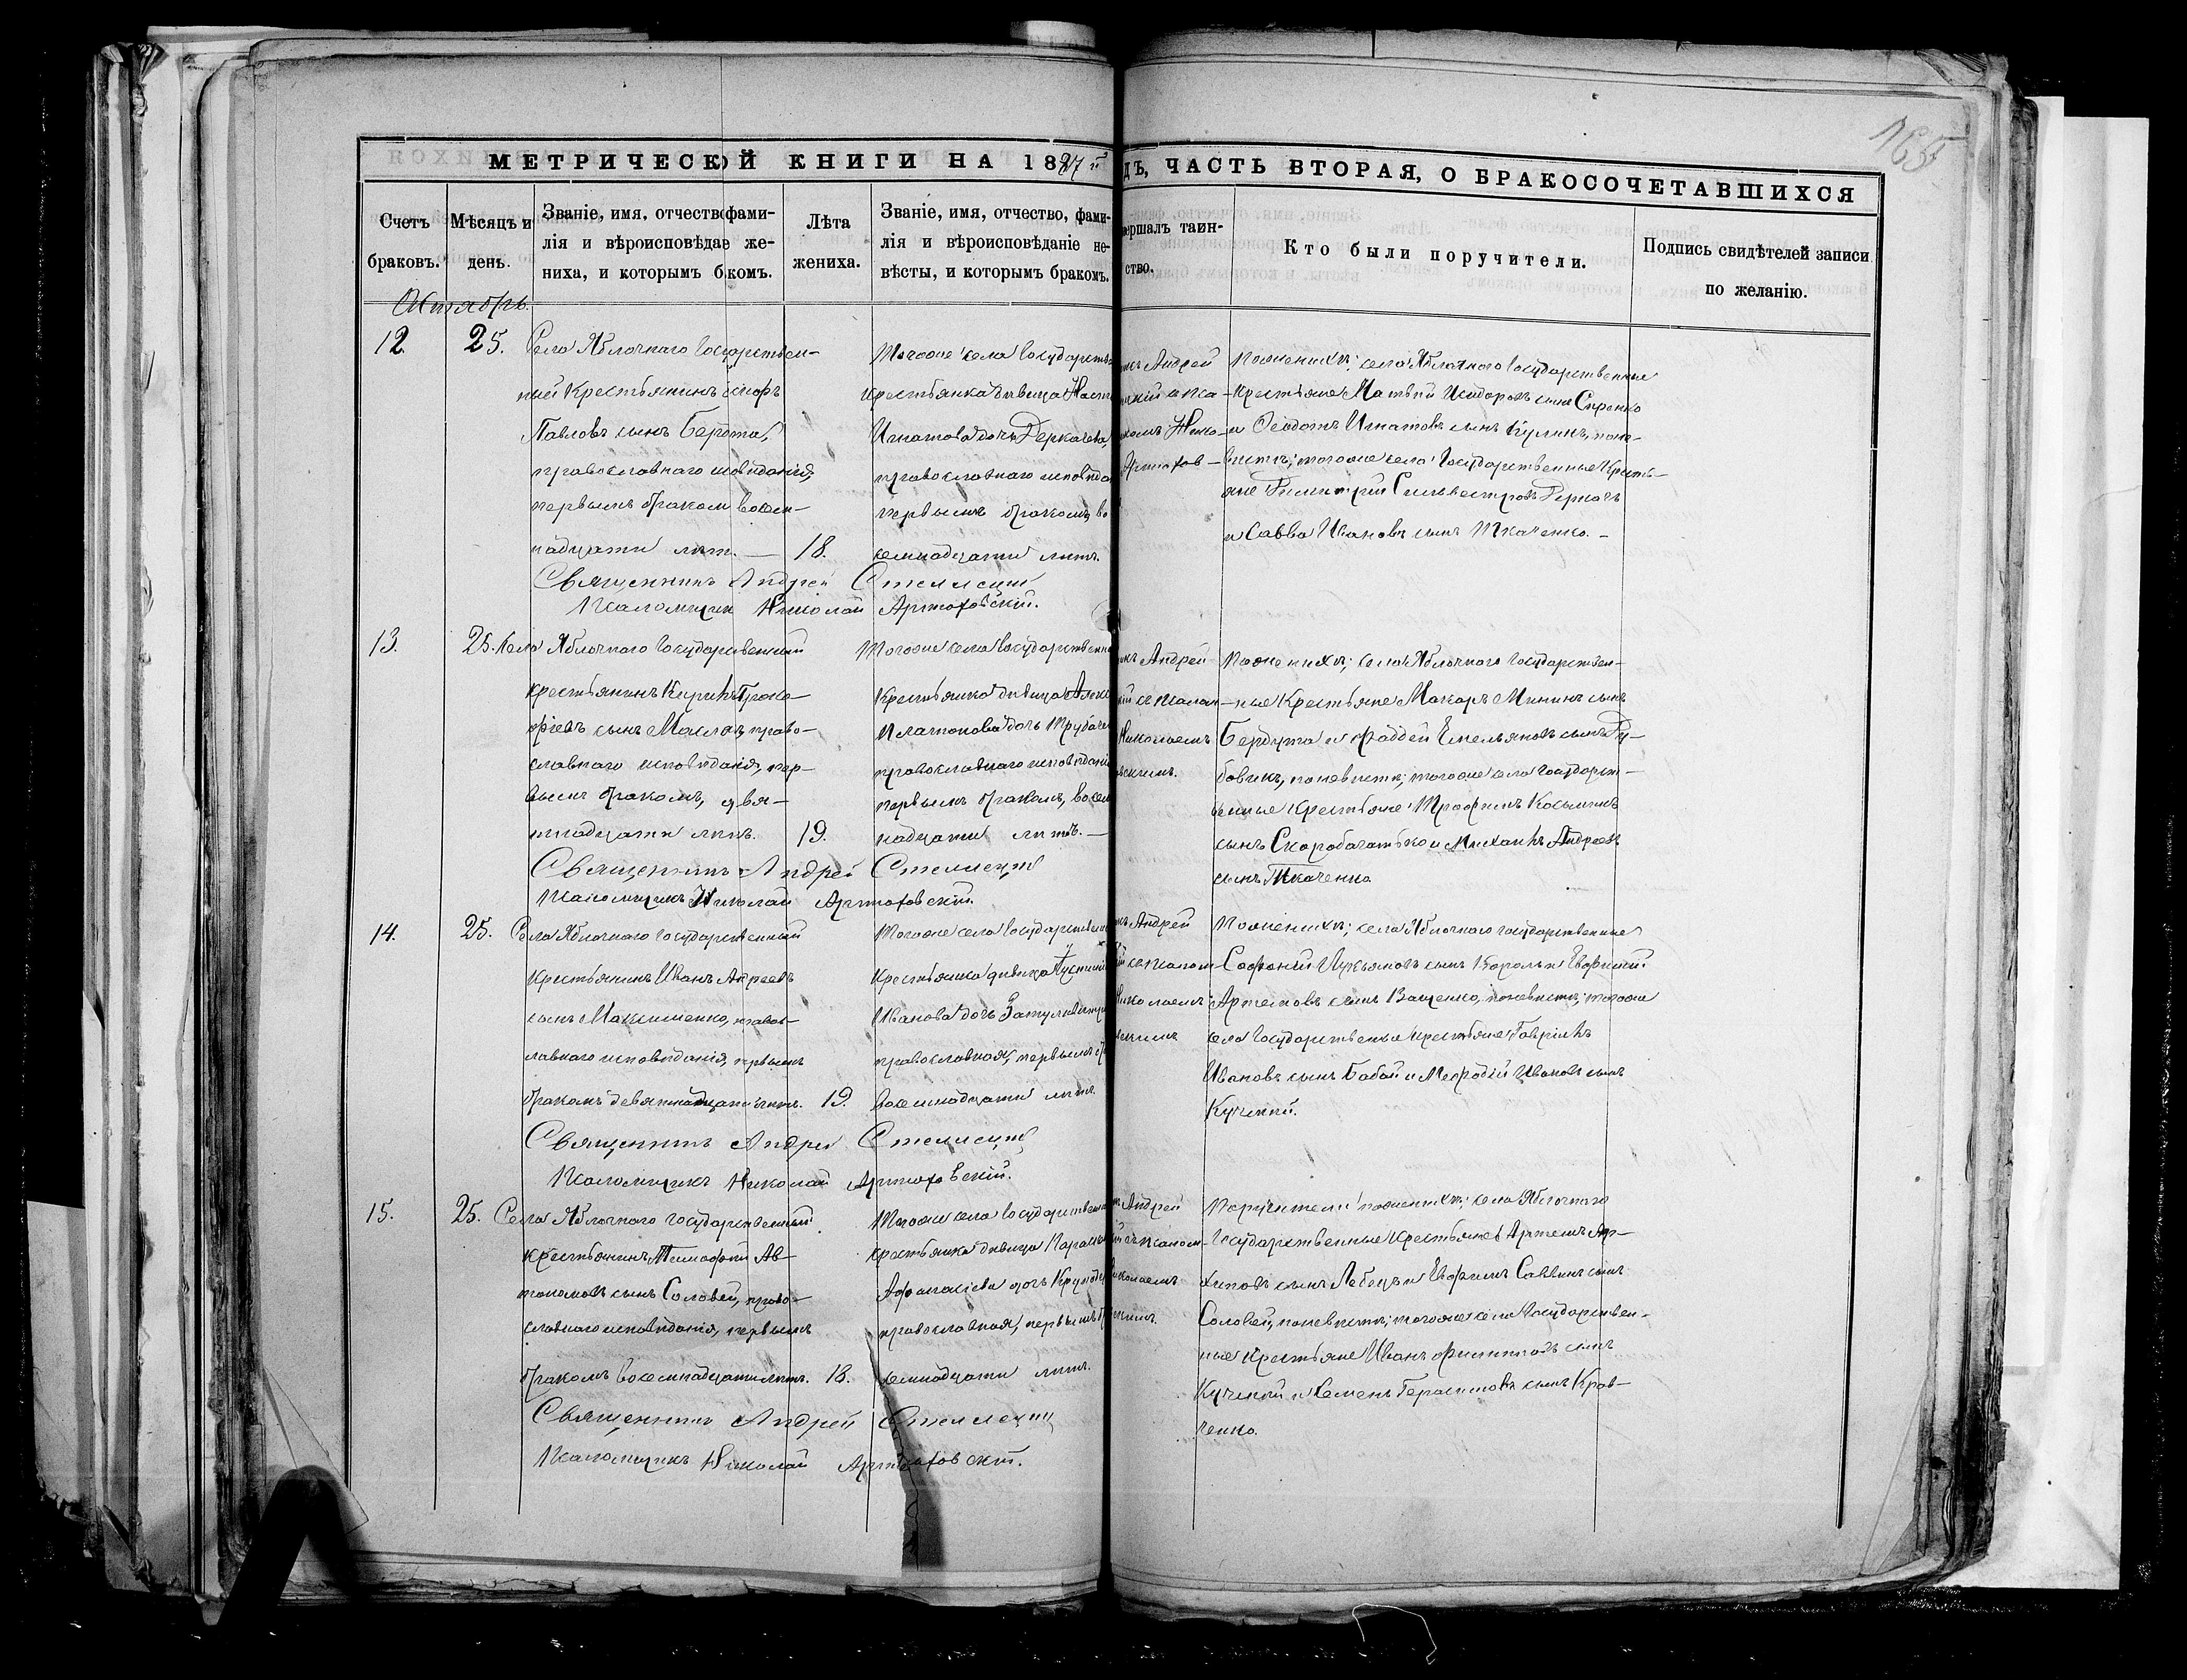 165
МЕТРИЧЕСКОЙ КНИГИ НА 1887й
ДЪ, ЧАСТЬ ВТОРАЯ, О БРАКОСОЧЕТАВШИХСЯ
Счетъ браковъ.
Мѣсяцъ и день.
Званіе, имя, отчество фами-
лія и вѣроисповѣдае же-
ниха, и которымъ бкомъ.
Лѣта жениха.
Званіе, имя, отчество, фами-
лія и вѣроисповѣданіе не-
вѣсты, и которымъ бракомъ.
вершалъ таин-
ство.
Кто были поручители.
Подпись свидѣтелей записи
по желанію.
Октябрь.
12. 25.
Села Яблочнаго Государствен-
ный Крестьянинъ
Павловъ сынъ
православнаго исповѣданія,
первымъ бракомъ восем-
надцати лѣт. — 18.
Тогоже села Государств
крестьянка дѣвица Наст
Игнатова дочь Деркачева,
православнаго исповѣда
первымъ бракомъ, во
семнадцати лѣтъ.
Андрей
Нико-
Артюхов-
По женихѣ; села Яблочнаго Государственные
Крестьяне Матвѣй Исидоровъ сынъ Сиренко
и Ѳеодотъ Игнатовъ сынъ Куликъ, поне-
вѣстѣ; тогоже села Государственные Кресть-
яне Димитрій Сильвестровъ Деркачъ
и Савва Ивановъ сынъ Ткаченко. -
Священникъ Андрей Стеллецкій
Псаломщик Николай Артюховскій.
13. 25.
Села Яблочнаго Государственный
крестьянинъ Кирилъ Проко-
фіевъ сынъ Маслов, право-
славнаго исповѣданія, пер-
вымъ бракомъ, девя-
тнадцати лѣтъ. 19.
Тогоже села Государственн
Крестьянка дѣвица Алекс
Платонова дочь Трубаче
православнаго исповѣданія
первымъ бракомъ, восем
надцати лѣтъ. —
Андрей
псалом
Николаемъ
вскимъ.
По женихѣ; села Яблочнаго Государствен-
ные Крестьяне Макаръ Мининъ сынъ
Бердута и Фаддей Емельяновъ сынъ Ду-
бовикъ, по невѣстѣ; тогоже села Государст-
венные крестьяне Трофимъ Косьминъ
сынъ Скоробагатько и Михаилъ Андреевъ
сынъ Ткаченко.
Священникъ Андрей Стеллецкій
Псаломщикъ Николай Артюховскій.
14. 25.
Села Яблочнаго Государственный
крестьянинъ Иванъ Андреевъ
сынъ Максименко, правос-
лавнаго исповѣданія, первымъ
бракомъ девятнадцати лѣтъ. 19.
Тогоже села Государственн
крестьянка дѣвица Іустині
Иванова дочь
православная, первымъ бр
восемнадцати лѣтъ.
Андрей
псалом
Николаемъ
скимъ
По женихѣ; села Яблочнаго Государственные
Софоній Лукьяновъ сынъ Король и Евфимій
Артемовъ сынъ Ващенко, поневѣстѣ; тогоже
села Государственные крестьяне Гавріилъ
Ивановъ сынъ Бабай и Меѳодій Ивановъ сынъ
Кучений.
Священникъ Андрей Стеллецкій
Псаломщикъ Николай Артюховскій.
15. 25.
Села Яблочнаго Государственный
крестьянинъ Тимофей Ав-
тономовъ сынъ Соловей, право-
славнаго исповѣданія, первымъ
бракомъ восемнадцати лѣтъ. 18.
Тогоже села Государственн
крестьянка дѣвица Параск
Афанасіева дочь
православная, первымъ бр
семнадцати лѣтъ.
Андрей
псалом-
Николаемъ
скимъ.
Поручители по женихѣ; села Яблочнаго
Государственные крестьяне Артемъ Ар-
хиповъ сынъ Лебедь и Евфимъ Саввинъ сынъ
Соловей, поневѣстѣ; тогоже села Государствен-
ные крестьяне Иванъ Филипповъ сынъ
Кучений и Семенъ Герасимовъ сынъ Крав-
ченко.
Священникъ Андрей Стеллецкій
Псаломщикъ Николай Артюховскій.